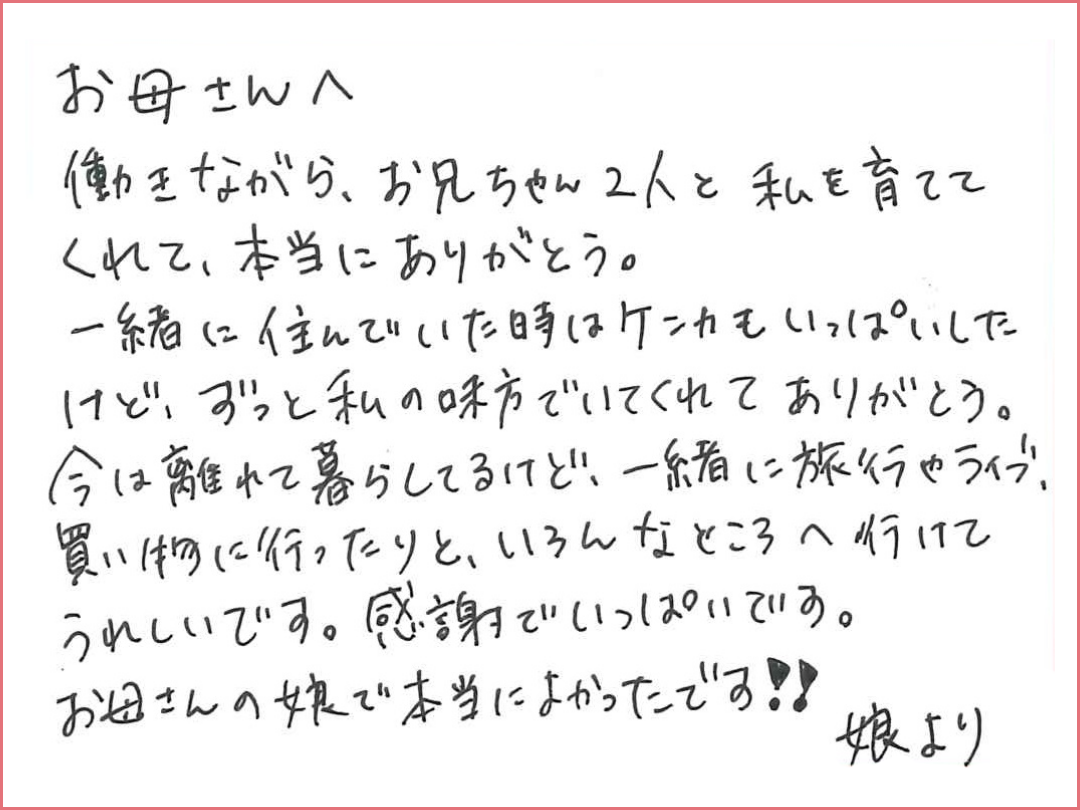 お母さんへ
働きながら、お兄ちゃん2人と私を育てて
くれて、本当にありがとう。
一緒に住んでいた時はケンカもいっぱいした
けど、ずっと私の味方でいてくれてありがとう。
今は離れて暮らしてるけど、一緒に旅行やライブ、
買い物に行ったりと、いろんなところへ行けて
うれしいです。感謝でいっぱいです。
お母さんの娘で本当によかったです!!
娘より